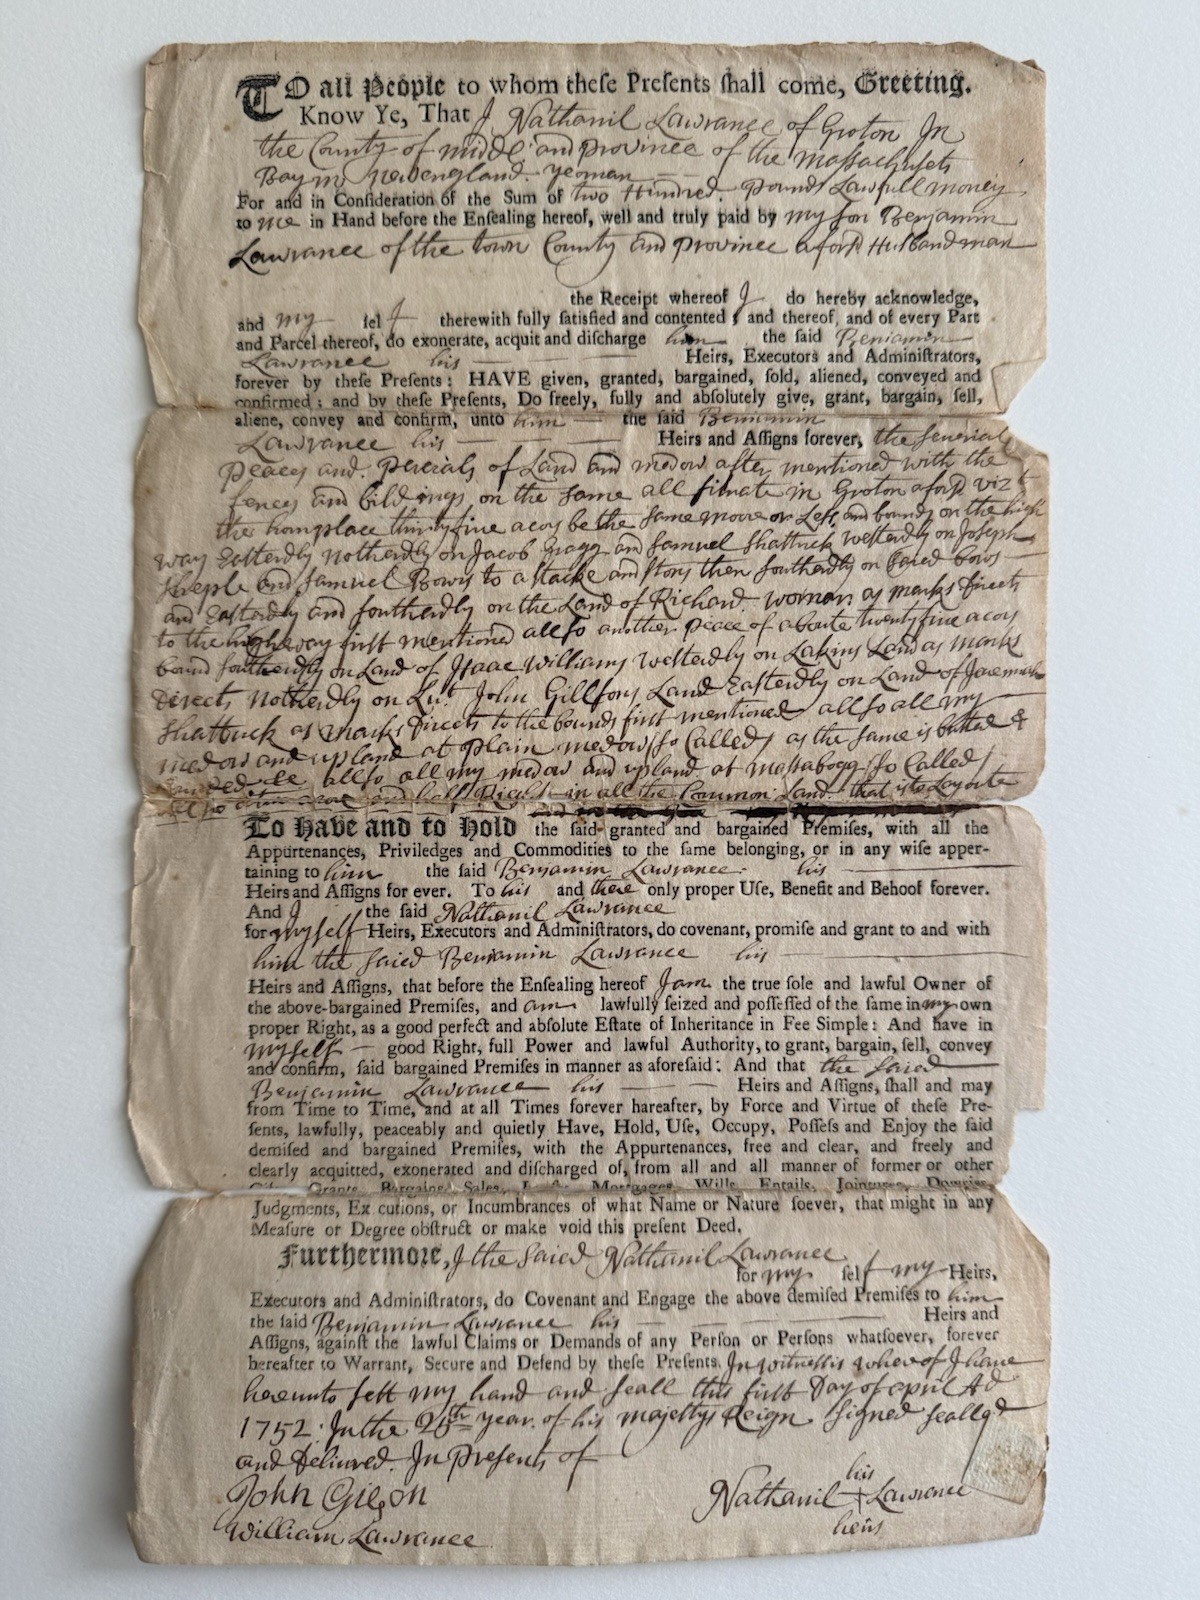 TO all People to whom these Presents shall come, Greeting.
Know Ye, That I Nathanil Lawrance of Groton In
the County of midd and province of the massachusets
Bay in newengland. yeoman
For and in Consideration of the Sum of two Hundred. pounds Lawfull money
to me in Hand before the Ensealing hereof, well and truly paid by my son Benjamin
Lawrance of the town County and province afors Husbandman
the Receipt whereof I do hereby acknowledge,
and my self therewith fully satisfied and contented; and thereof, and of every Part
and Parcel thereof, do exonerate, acquit and discharge him the said Benjamin
Lawrance his Heirs, Executors and Administrators,
forever by these Presents: HAVE given, granted, bargained, sold, aliened, conveyed and
confirmed; and by these Presents, Do freely, fully and absolutely give, grant, bargain, sell,
aliene, convey and confirm, unto him the said Benjamin
Lawrance his Heirs and Assigns forever, the severial
peaces and percials of Land and medow after mentioned with the
fences and bildings on the same all situate in Groton afors viz
the homplace thirty five acors be the same moore or Less and bounds on the high
way Easterdly notherdly on Jacob Gragg and Samuel Shattuck westerdly on Joseph
and Samuel Bowrs to a stacke and stons then southerdly on saied Bows
and Easterdly and southerdly on the Land of Richard woman as marks Directs
to the highway first mentioned allso another peace of aboute twenty five acors
bound southerdly on Land of Isaac Williams westerdly on Lakins Land as marks
Directs notherdly on Lut John Gillsons Land Easterdly on Land of Jaremiah
Shattuck as marks Directs to the bounds first mentioned allso all my
medow and upland at plain medow (so Called) as the same is butted &
bounded allso all my medow and upland at massabogg so Called
and half Right in all the Common Land. that is to Layoute
To Have and to Hold the said granted and bargained Premises, with all the
Appurtenances, Priviledges and Commodities to the same belonging, or in any wise apper-
taining to him the said Benjamin Lawrance his
Heirs and Assigns for ever. To his and there only proper Use, Benefit and Behoof forever.
And I the said Nathanil Lawrance
for myself Heirs, Executors and Administrators, do covenant, promise and grant to and with
him the saied Benjamin Lawrance his
Heirs and Assigns, that before the Ensealing hereof I am the true sole and lawful Owner of
the above-bargained Premises, and am lawfully seized and possessed of the same in my own
proper Right, as a good perfect and absolute Estate of Inheritance in Fee Simple: And have in
myself good Right, full Power and lawful Authority, to grant, bargain, sell, convey
and confirm, said bargained Premises in manner as aforesaid: And that the saied
Benjamin Lawrance his Heirs and Assigns, shall and may
from Time to Time, and at all Times forever hareafter, by Force and Virtue of these Pre-
sents, lawfully, peaceably and quietly Have, Hold, Use, Occupy, Possess and Enjoy the said
demised and bargained Premises, with the Appurtenances, free and clear, and freely and
clearly acquitted, exonerated and discharged of, from all and all manner of former or other
Gifts, Grants, Bargains, Sales, Leases, Mortgages, Wills, Entails, Jointures, Dowries,
Judgments, Ex cutions, or Incumbrances of what Name or Nature soever, that might in any
Measure or Degree obstruct or make void this present Deed.
Furthermore, I the saied Nathanil Lawrance
for my self my Heirs,
Executors and Administrators, do Covenant and Engage the above demised Premises to him
the said Benjamin Lawrance his Heirs and
Assigns, against the lawful Claims or Demands of any Person or Persons whatsoever, forever
hereafter to Warrant, Secure and Defend by these Presents. In witness wherof I have
hereunto sett my hand and seall this first Day of april AD
1752: In the 25th year of his majestys Reign Signed sealled
and Delivred. In presents of
John Gilson
William Lawrance
his
Nathanil + Lawrance